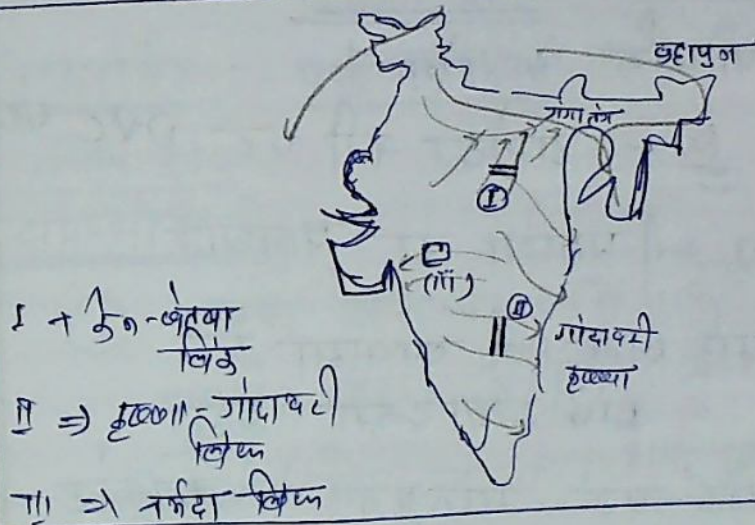 ब्रह्मपुत्र
गंगा तंत्र
I
(III)
II
गोदावरी
कृष्णा
I → केन-बेतवा
लिंक
II ⇒ कृष्णा-गोदावरी
लिंक
III ⇒ नर्मदा लिंक